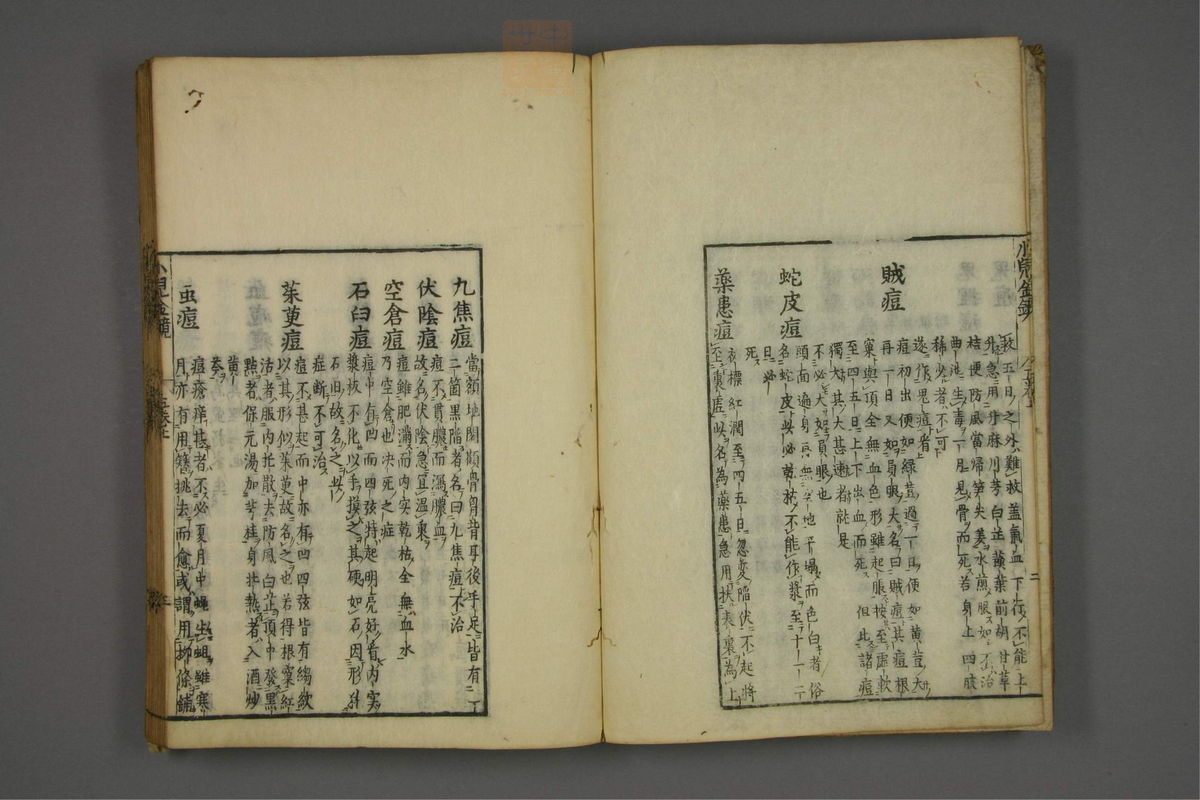 小兒金鏡
救五日之外難救蓋氣血下行不能上
升急用升麻川芎白芷黃葉前胡甘草
桂便防風當帰笋尖姜水煎服如不治
曲池生毒一旦見骨而死若身上四肢
稀少者不可下
賊痘
逆作鬼痘看
痘初出便如綠荳過一日便如黃荳大
再一日又如鳥眼大名曰賊痘其痘根
窠與頂全無血色形雖起脹按至虛軟
至四五日上下出血而死但此諸痘
獨大其大甚速者就是
不必大如鳥眼也
蛇皮痘
頭面遍身無空地平塌而色白者俗
名蛇皮此必乾枯不能作漿至十一二
日必
死
藥患痘
衣標紅潤至四五日忽変陥伏不起將
至裏虛此名為藥患急用扶表裏為上
九焦痘
當額地閣顴骨胷背耳後手足皆有一
二箇黑陥者名曰九焦痘不治
伏陰痘
痘不貫膿而瀉膿血
故名伏陰急宜溫裏
空倉痘
痘雖肥滿而内实乾枯全無血水
乃空倉也决死之症
石臼痘
痘中有凹而四弦特起明亮好看内実
漿板不化以手摸之其硬如石因形外
石臼故名之此
症断不可治
茱萸痘
痘不甚起而中亦有凹四弦皆有縐紋
以其形似茱萸故名之也若得根窠紅
活者服内托散去防風白芷頂中發黑
點者保元湯加芎桂身非熱者入酒炒
黃
芩
虫痘
痘瘡痒甚者不必夏月中蠅生蛆雖寒
月亦有用簪挑去而愈或謂用柳條鋪